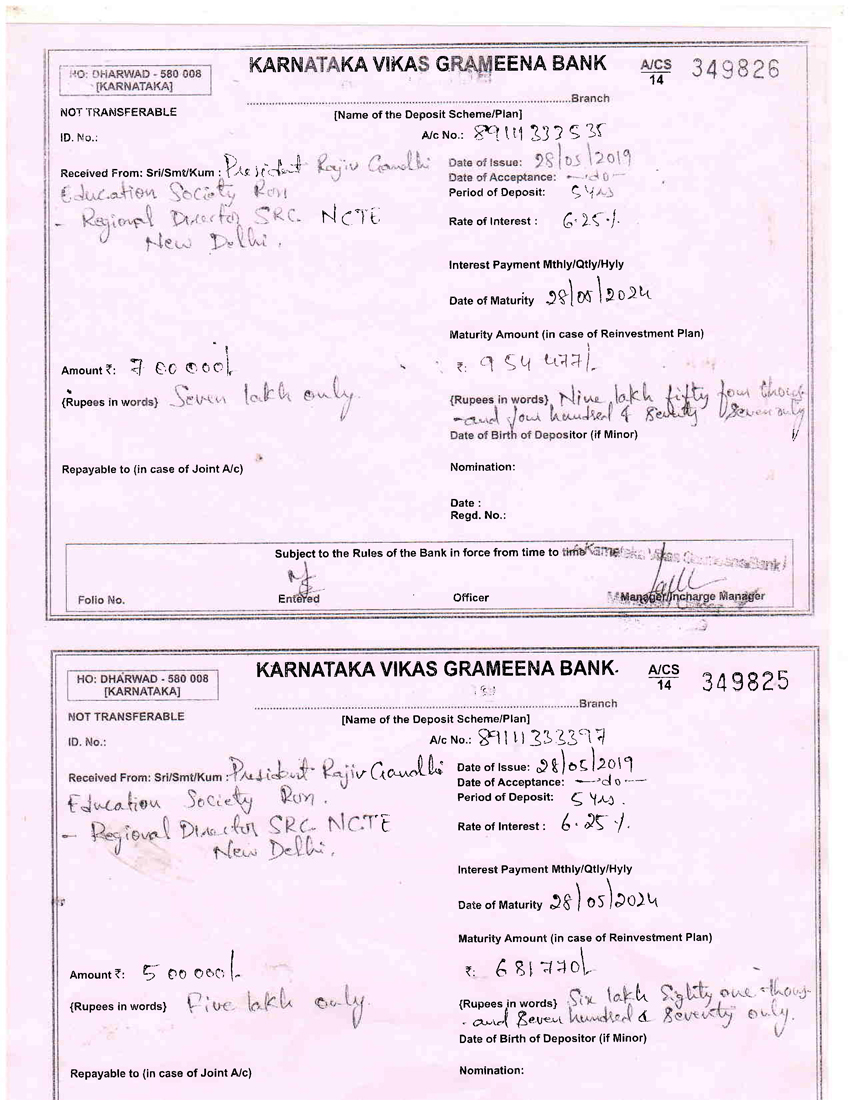 HO: DHARWAD - 580 008
[KARNATAKA]
KARNATAKA VIKAS GRAMEENA BANK
A/CS
14
349826
Branch
NOT TRANSFERABLE
[Name of the Deposit Scheme/Plan]
ID. No.:
A/c No.: 89111333535
Received From: Sri/Smt/Kum : President Rajiv Gandhi
Education Society Ron
- Regional Director SRC NCTE
New Delhi.
Date of Issue: 28/05/2019
Date of Acceptance: -do-
Period of Deposit: 5 yrs
Rate of Interest : 6.25 %
Interest Payment Mthly/Qtly/Hyly
Date of Maturity 28/05/2024
Maturity Amount (in case of Reinvestment Plan)
Amount ₹: 700000/-
₹: 954477/-
{Rupees in words} Seven lakh only.
{Rupees in words} Nine lakh fifty four thous-
-and four hundred & seventy seven only
Date of Birth of Depositor (if Minor)
Repayable to (in case of Joint A/c)
Nomination:
Date :
Regd. No.:
Subject to the Rules of the Bank in force from time to time
Karnataka Vikas Grameena Bank
Folio No.
Entered
Officer
Manager/Incharge Manager
HO: DHARWAD - 580 008
[KARNATAKA]
KARNATAKA VIKAS GRAMEENA BANK.
A/CS
14
349825
Branch
NOT TRANSFERABLE
[Name of the Deposit Scheme/Plan]
ID. No.:
A/c No.: 89111333397
Received From: Sri/Smt/Kum : President Rajiv Gandhi
Education Society Ron.
- Regional Director SRC NCTE
New Delhi.
Date of Issue: 28/05/2019
Date of Acceptance: -do-
Period of Deposit: 5 yrs.
Rate of Interest : 6.25 %.
Interest Payment Mthly/Qtly/Hyly
Date of Maturity 28/05/2024
Maturity Amount (in case of Reinvestment Plan)
Amount ₹: 500000/-
₹: 681770/-
{Rupees in words} Five lakh only.
{Rupees in words} Six lakh Eighty one thous-
-and Seven hundred & Seventy only.
Date of Birth of Depositor (if Minor)
Repayable to (in case of Joint A/c)
Nomination: